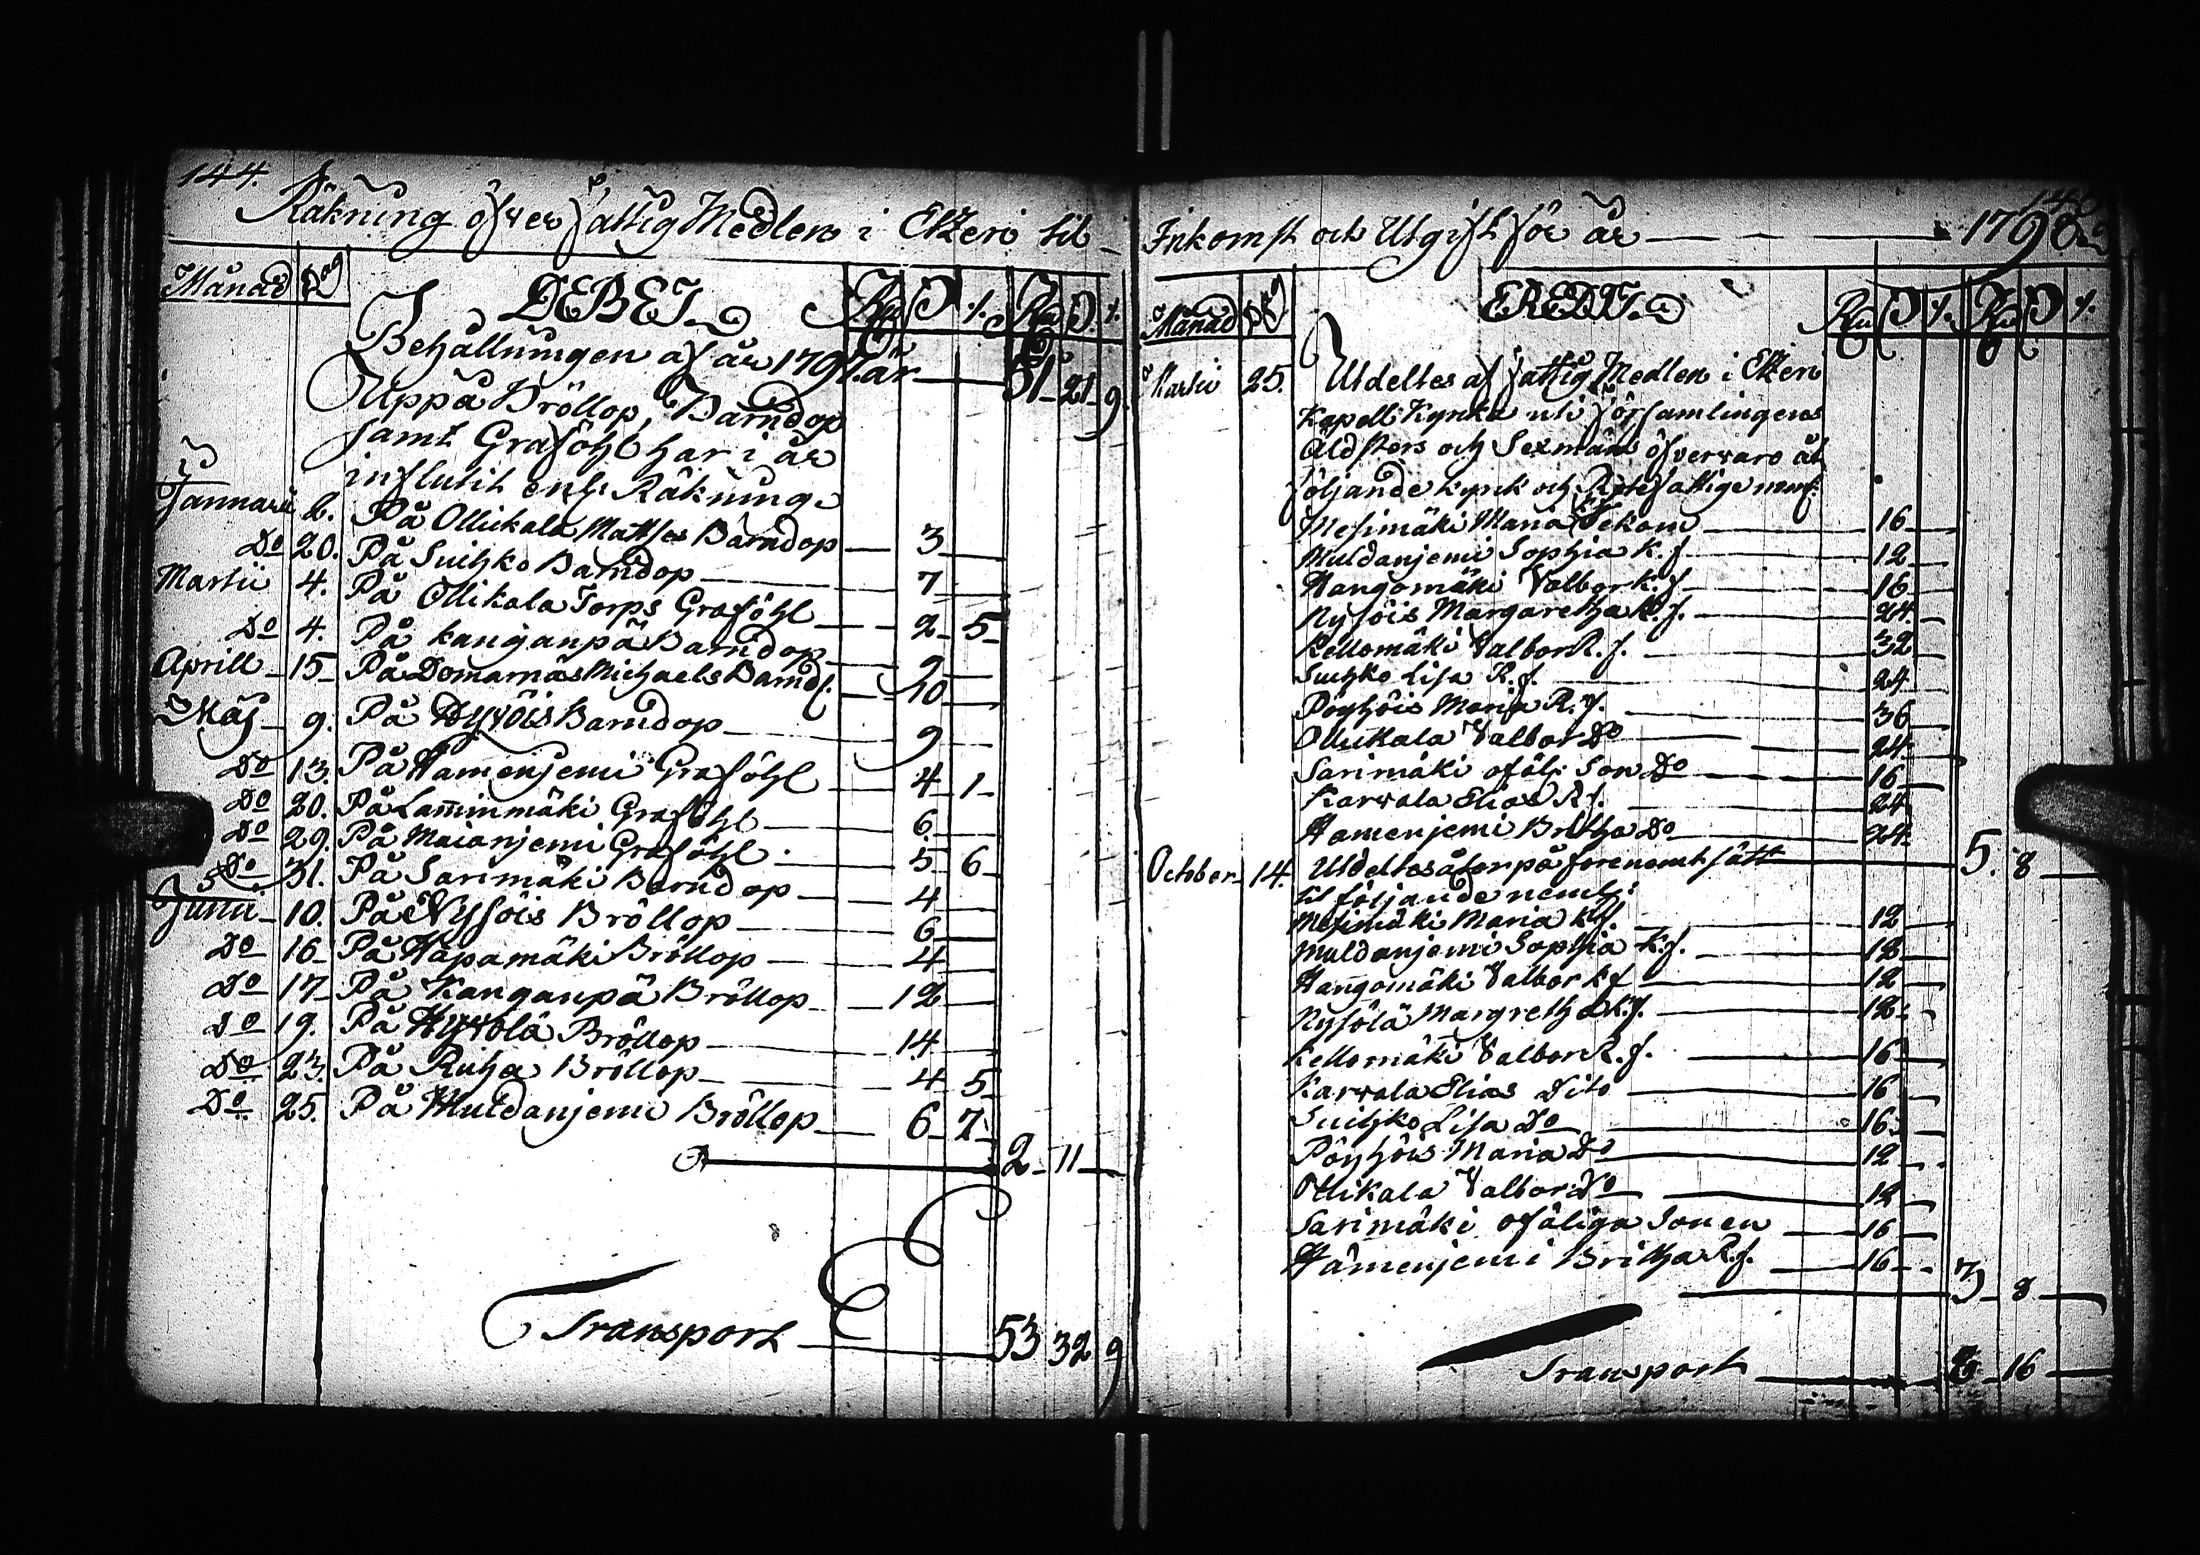 144.
Räkning öfver fattig Medlen i Etzeri til
Månad Dag DEBET Rd ß rs. Rd ß rs.
Behållningen af år 1797. är — 51 - 21 - 9
Uppå Bröllop, Barndop
samt Grafölhl har i år
influtit enl: Räkning
Januarii 6. På Ollikala Mattses Barndop — 3 —
Do 20. På Suihko Barndop — 7 —
Martii 4. På Ollikala Torps Graföhl — 2 - 5 -
Do 4. På Kanganpä Barndop — 9 —
Aprill - 15 - På Domarnäs Michaels Barnd. — 10 —
Maj - 9. På Barndop — 9 —
Do 13. På Hamenjemi Graföhl — 4 - 1 -
Do 20. På Lamminmäki Graföhl — 6. —
Do 29. På Maianjemi Graföhl — 5 - 6 -
Do 31. På Sarimäki Barndop — 4 —
Junii - 10. På Nysöis Bröllop — 6 —
Do - 16 - På Hapamäki Bröllop — 4 —
Do - 17 - På Kanganpä Bröllop — 12 —
Do - 19. På Hyvölä Bröllop — 14 —
Do - 23. På Ruha Bröllop — 4 - 5 -
Do - 25. På Muldanjemi Bröllop — 6 - 7 -
2 - 11 —
Transport — 53 32 9
145
Inkomst och Utgift för år — 1798.
Månad Dag CREDIT. Rd ß rs. Rd ß rs.
Martii 25. Utdeltes af fattig Medlen i Etzeri
Kapell Kyrka uti församlingens
Äldsters och Sexmäns öfvervaro åt
följande kyrk och Rotefattige
Mesimäki Maria — 16 —
Muldanjemi Sophia K. f. — 12 —
Hangomäki Valbor K. f. — 16 —
Nysöis Margaretha K. f. — 24. —
Kellomäki Valbor R. f. — 32 —
Suihko Lisa R. f. — 24 —
Pöyhöis Maria R. f. — 36 —
Ollikala Valbor Do — 24. —
Sarimäki ofäl: Son Do — 16 —
Karvala Elias R f. — 24 —
Hamenjemi Britha Do — 24. —
5. 8 —
October - 14. Utdeltes åter på förenämt sätt
til följande neml:
Mesimäki Maria K f. — 12 —
Muldanjemi Sophia K. f. — 12 —
Hangomäki Valbor K f — 12 —
Nysölä Margretha K. f. — 12 —
Kellomäki Valbor R. f. — 16 —
Karvala Elias Dito — 16 —
Suihko Lisa Do — 16 —
Pöyhöis Maria Do — 12 —
Ollikala Valbor Do — 12 —
Sarimäki ofäliga Sonen — 16 —
Hämenjemi Britha R. f. — 16 —
3 - 8 —
Transport — 8 - 16 —